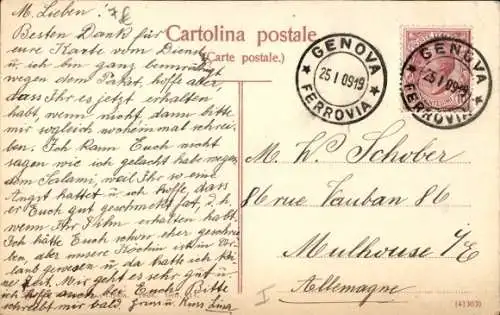 M. Lieben!
Besten Dank für
eure Karte vom Dienst
u. ich bin ganz beunruhigt
wegen dem Paket, hoffe aber,
dass Ihr es jetzt erhalten
habt, wenn nicht, dann bitte
mir sogleich nochmal schrei-
ben. Ich kann Euch nicht
sagen wie ich gelacht habe wegen
dem Salami, weil Ihr so eine
Angst hattet u. ich hoffe, dass
er Euch gut geschmeckt hat, d. h.
wenn Ihr Ihn erhalten habt.
Ich hätte Euch schon eher geschrie-
ben, aber unsere Köchin ist in Ur-
laub gewesen u. da hatte ich keine
Zeit. Mir geht es sehr gut u.
ich hoffe auch bei Euch. Bitte
schreibt mir bald. Gruss u. Kuss Lina
Cartolina postale.
(Carte postale.)
GENOVA
25 I 09 19
FERROVIA
GENOVA
25 I 09 19
FERROVIA
M. Schober
86 rue Vauban 86
Mulhouse i/E
Allemagne